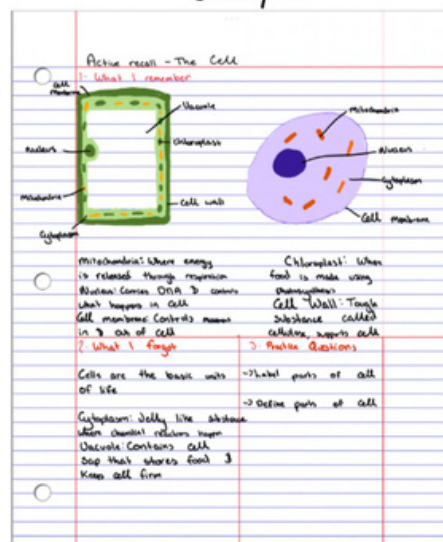 Active recall - The Cell
1- What I remember
Cell membrane
Vacuole
Chloroplast
Nucleus
Mitochondria
Cell wall
Cytoplasm
Mitochondria
Nucleus
Cytoplasm
Cell membrane
Mitochondria: Where energy
is released through respiration
Nucleus: Carries DNA & controls
what happens in cell
Cell membrane: Controls
in & out of cell
Chloroplast: Where
food is made using
photosynthesis
Cell Wall: Tough
substance called
cellulose, supports cell
2- What I forgot
Cells are the basic units
of life
Cytoplasm: Jelly like substance
where chemical reactions happen
Vacuole: Contains cell
sap that stores food &
keep cell firm
3- Practice Questions
-> Label parts of cell
-> Define parts of cell